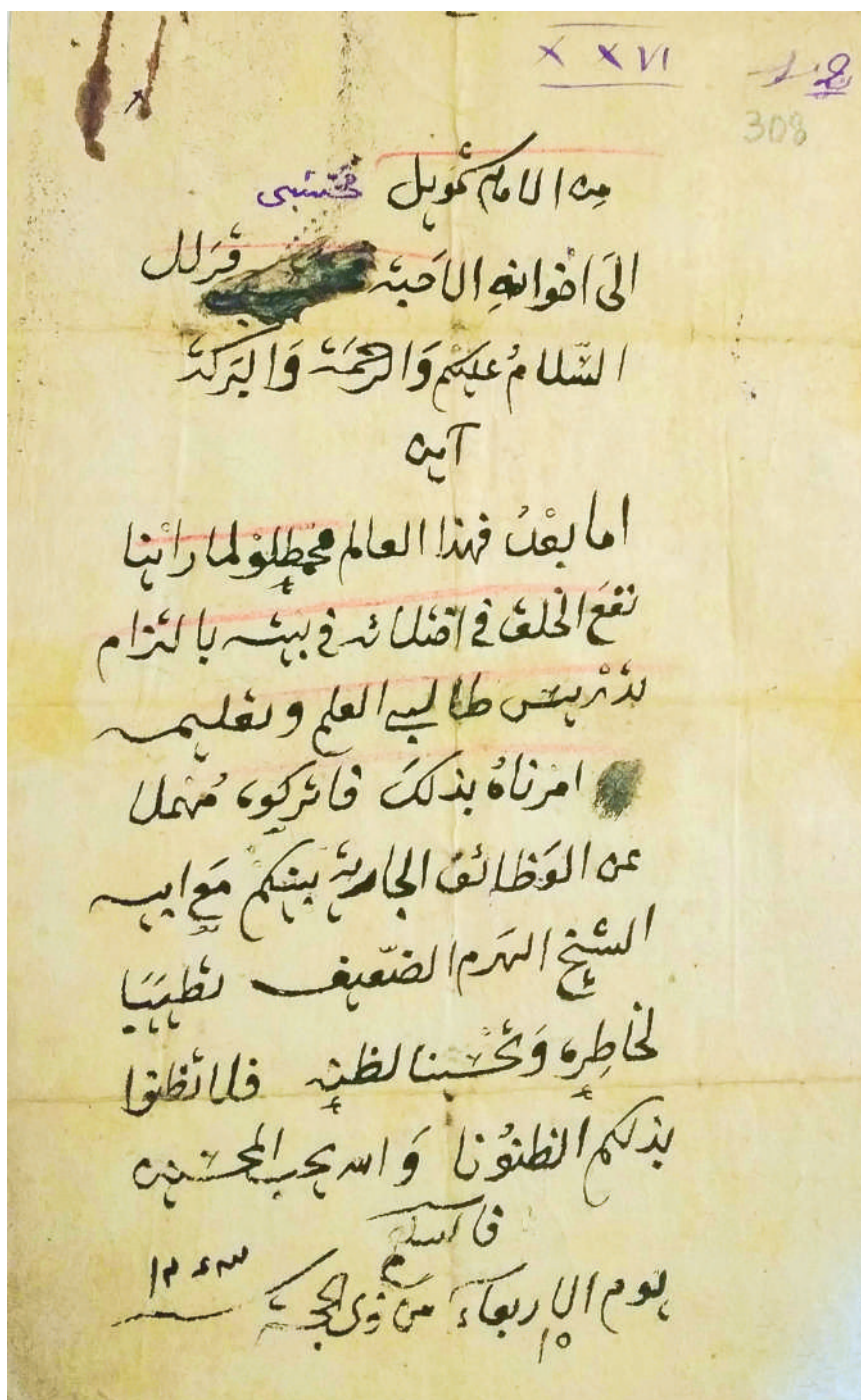 XXVI
308
من الامام شمويل
الَى اخوانهِ الاحبة قرلل
السّلامُ عليكم وَالرحمَة وَالبَركة
آمين
اما بعْدُ فهذا العالم محمطلو لما رائنا
نفعَ الخلق في افضاله في بيته بالتزام
تدريس طالبي العلم وتعليمه
امرناهُ بذلكَ فاتركوه مُهملا
عن الوَظائف الجارية بينكم مَع ابيه
الشيخ الهَرم الضّعيف تطييبًا
لخاطِرِه وَتحسينا لظنه فلا تظنوا
بذلكم الظنوُنا وَالله يحب المحسنين
فالسلام
يوم الاربعاء من ذي الحجة
١٥